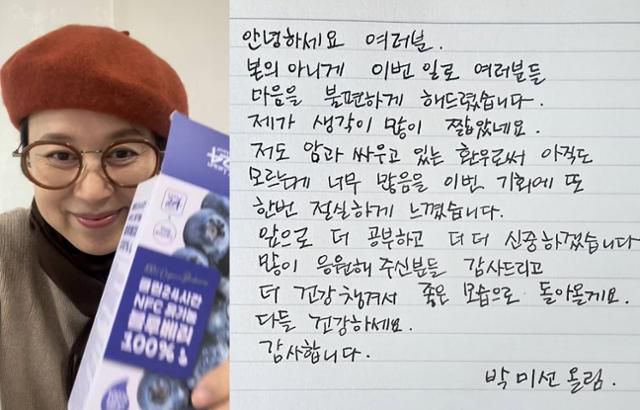 100%
안녕하세요 여러분.
본의 아니게 이번 일로 여러분들
마음을 불편하게 해드렸습니다.
제가 생각이 많이 짧았네요.
저도 암과 싸우고 있는 환우로써 아직도
모르는게 너무 많음을 이번 기회에 또
한번 절실하게 느꼈습니다.
앞으로 더 공부하고 더 더 신중하겠습니다
많이 응원해 주신분들 감사드리고
더 건강챙겨서 좋은 모습으로 돌아올게요.
다들 건강하세요.
감사합니다.
박미선 올림.
24시간
NFC 유기농
블루베리